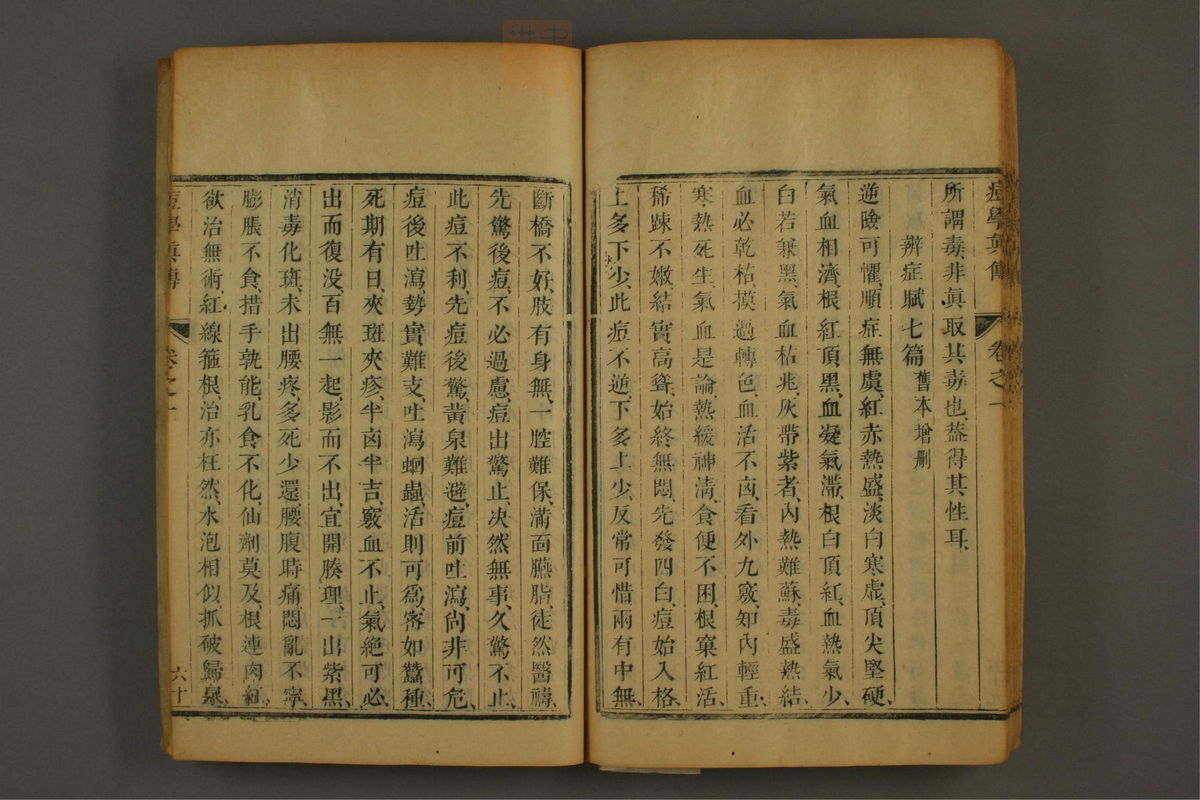 痘學真傳 卷之一
所謂毒非眞取其毒也葢得其性耳
辨症賦七篇 舊本增刪
逆險可懼順症無虞紅赤熱盛淡白寒虛頂尖堅硬
氣血相濟根紅頂黑血凝氣滯根白頂紅血熱氣少
白若兼黑氣血枯兆灰帶紫者內熱難蘇毒盛熱結
血必乾枯摸過轉色血活不凶看外九竅知內輕重
寒熱死生氣血是論熱緩神淸食便不困根窠紅活
稀踈不嫩結實高聳始終無悶先發四白痘始入格
上多下少此痘不逆下多上少反常可惜兩有中無
斷橋不好肢有身無一腔難保滿面臙脂徒然醫禱
先驚後痘不必過慮痘出驚止决然無事久驚不止
此痘不利先痘後驚黃泉難避痘前吐瀉尙非可危
痘後吐瀉勢實難支吐瀉蛔蟲活則可爲密如蠶種
死期有日夾斑夾疹半凶半吉竅血不止氣絕可必
出而復没百無一起影而不出宜開腠理一出紫黑
消毒化斑未出腰疼多死少還腰腹時痛悶亂不寧
膨脹不食措手孰能乳食不化仙劑莫及根連肉紅
欲治無術紅線箍根治亦枉然水泡相似抓破歸泉
痘學眞傳 卷之一 六十